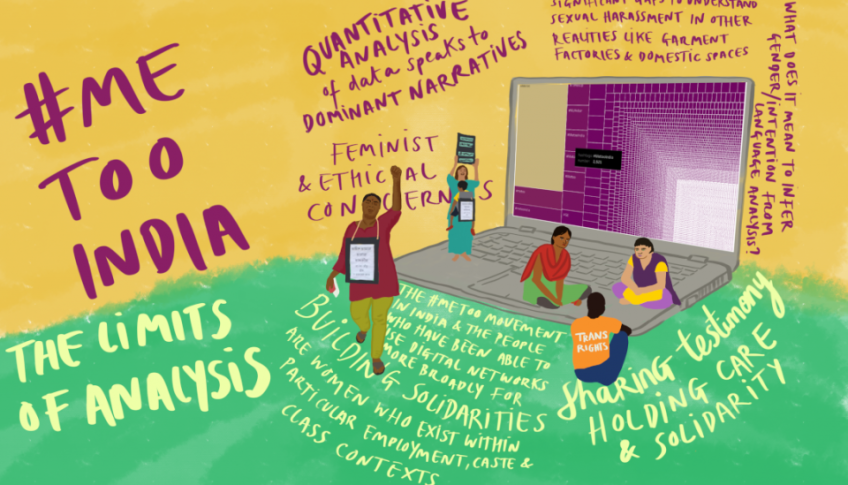 #ME
TOO
INDIA
THE LIMITS
OF ANALYSIS
QUANTITATIVE
ANALYSIS
of data speaks to
DOMINANT NARRATIVES
FEMINIST
& ETHICAL
CONCERNS
SIGNIFICANT GAPS TO UNDERSTAND
SEXUAL HARASSMENT IN OTHER
REALITIES LIKE GARMENT
FACTORIES & DOMESTIC SPACES
WHAT DOES IT MEAN TO INFER
GENDER/INTENTION FROM
LANGUAGE ANALYSIS?
THE #METOO MOVEMENT
IN INDIA & THE PEOPLE
WHO HAVE BEEN ABLE TO
USE DIGITAL NETWORKS
MORE BROADLY FOR
BUILDING SOLIDARITIES
ARE WOMEN WHO EXIST WITHIN
PARTICULAR EMPLOYMENT, CASTE &
CLASS CONTEXTS
TRANS
RIGHTS
sharing testimony
HOLDING CARE
& SOLIDARITY